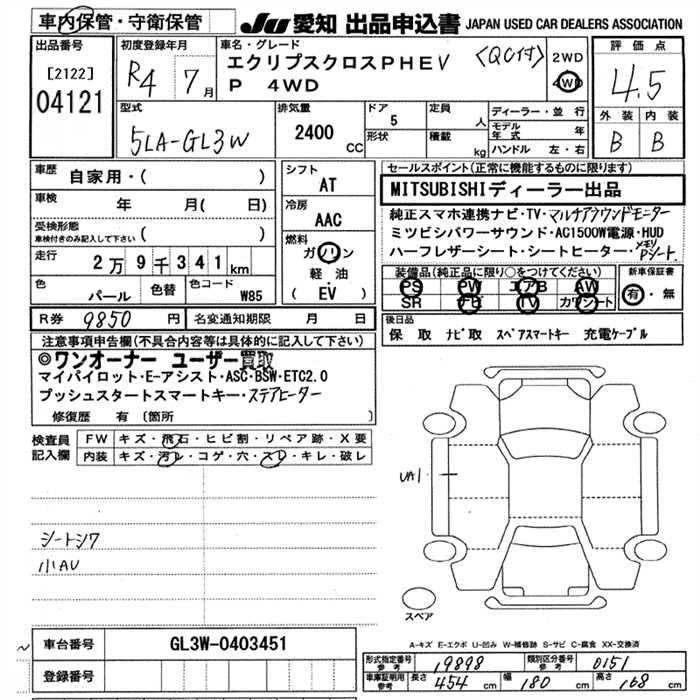 車内保管・守衛保管 JU 愛知 出品申込書 JAPAN USED CAR DEALERS ASSOCIATION
出品番号
[2122]
04121
初度登録年月
R4 7月
車名・グレード
エクリプスクロスPHEV 〈QC付〉
P 4WD
2WD
4WD
評価点
4.5
外装 内装
B B
型式
5LA-GL3W
排気量
2400 CC
ドア 5
形状
定員 人
積載 kg
ディーラー・並行
モデル年式 年
ハンドル 左・右
車歴
自家用・( )
車検
年 月( 日)
受検形態
車検付きのみ記入して下さい ( )
走行
2万9千341km
色
パール
色替
色コード
W85
シフト
AT
冷房
AAC
燃料
ガソリン
軽油
( EV )
セールスポイント(正常に機能するものに限ります)
MITSUBISHIディーラー出品
純正スマホ連携ナビ・TV・マルチアラウンドモニター
ミツビシパワーサウンド・AC1500W電源・HUD
ハーフレザーシート・シートヒーター・メモリPシート
装備品(純正品に限り○をつけてください)
PS PW エアB AW
SR ナビ TV カワシート
新車保証書
有・無
R券 9850 円 名変通知期限 月 日
後日品
保 取 ナビ取 スペアスマートキー 充電ケーブル
注意事項申告欄(不具合内容等は具体的に記入して下さい)
◎ワンオーナー ユーザー買取
マイパイロット・E-アシスト・ASC・BSW・ETC2.0
プッシュスタートスマートキー・ステアヒーター
修復歴 有 〔箇所 〕
検査員記入欄
FW キズ・飛石・ヒビ割・リペア跡・X要
内装 キズ・汚レ・コゲ・穴・スレ・キレ・破レ
シートシワ
小AU
UA1
スペア
A-キズ E-エクボ U-凹み W-補修跡 S-サビ C-腐食 XX-交換済
車台番号 GL3W-0403451
登録番号
形式指定番号 参考 19898 類別区分番号 参考 0151
車庫証明用 参考 長さ 454 cm 幅 180 cm 高さ 168 cm